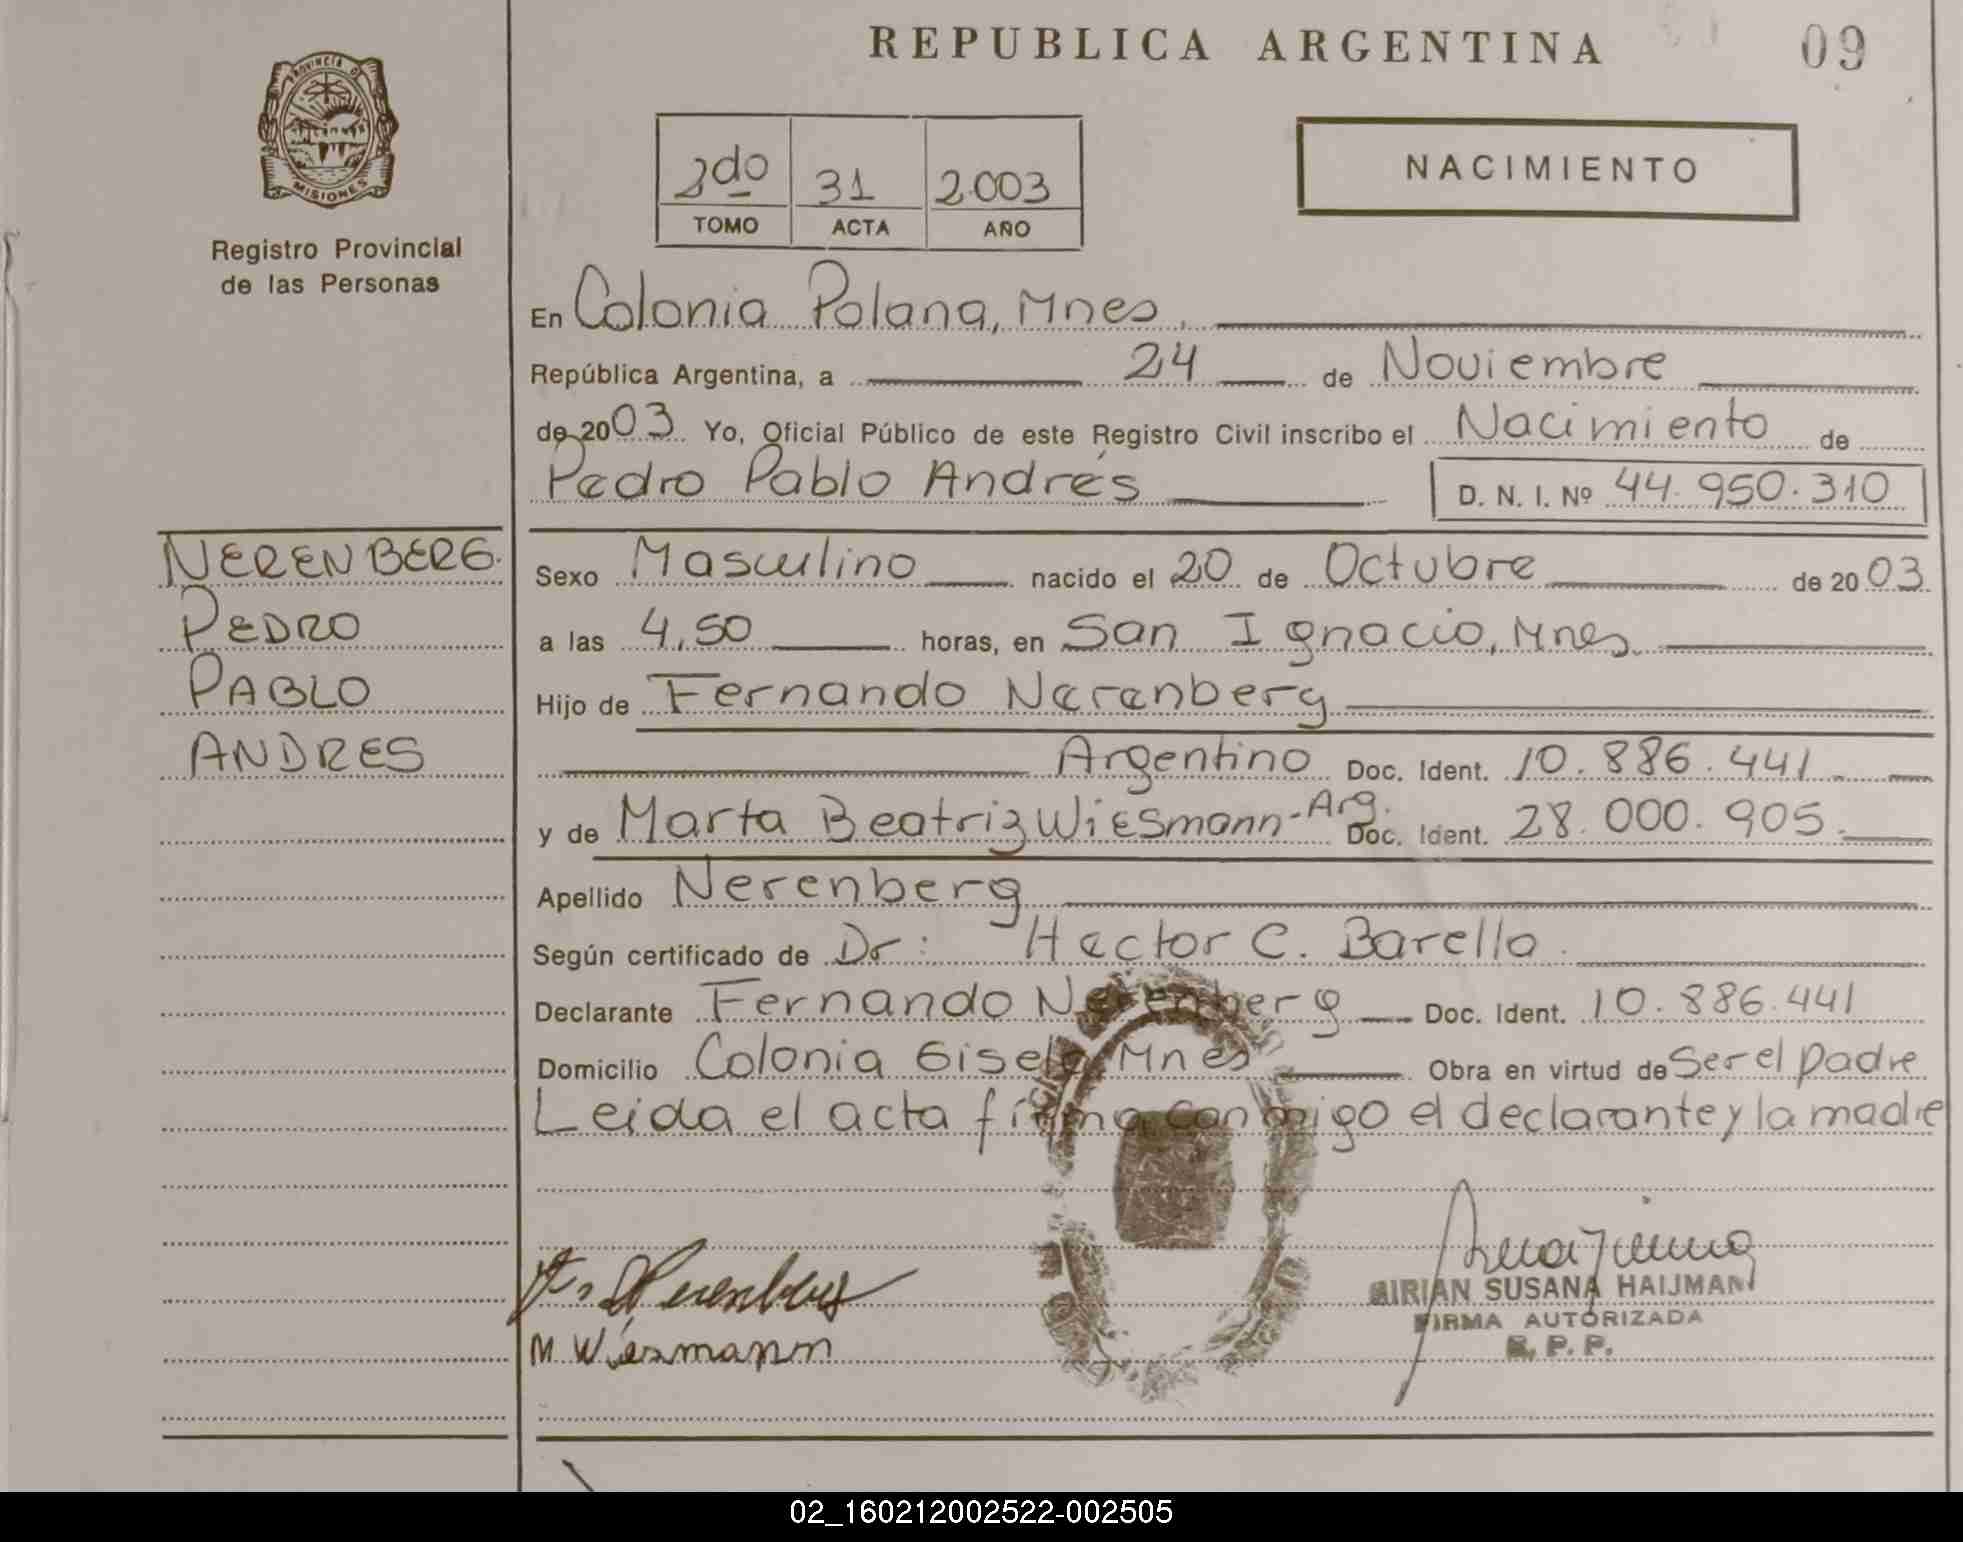 REPUBLICA ARGENTINA
09
PROVINCIA D
MISIONES
Registro Provincial
de las Personas
2do 31 2003
TOMO ACTA AÑO
NACIMIENTO
En Colonia Polana, Mnes.
República Argentina, a 24 de Noviembre
de 2003 Yo, Oficial Público de este Registro Civil inscribo el Nacimiento de
Pedro Pablo Andrés D. N. I. Nº 44.950.310
NERENBERG.
PEDRO
PABLO
ANDRES
Sexo Masculino nacido el 20 de Octubre de 2003
a las 4,50 horas, en San Ignacio, Mnes.
Hijo de Fernando Nerenberg
Argentino Doc. Ident. 10.886.441
y de Marta Beatriz Wiesmann-Arg. Doc. Ident. 28.000.905.
Apellido Nerenberg
Según certificado de Dr: Hector C. Barello.
Declarante Fernando Nerenberg Doc. Ident. 10.886.441
Domicilio Colonia Gisela Mnes Obra en virtud de Ser el padre
Leida el acta firma conmigo el declarante y la madre
Nerenberg
M Wiesmann
MIRIAN SUSANA HAIJMAN
FIRMA AUTORIZADA
R. P. P.
02_160212002522-002505